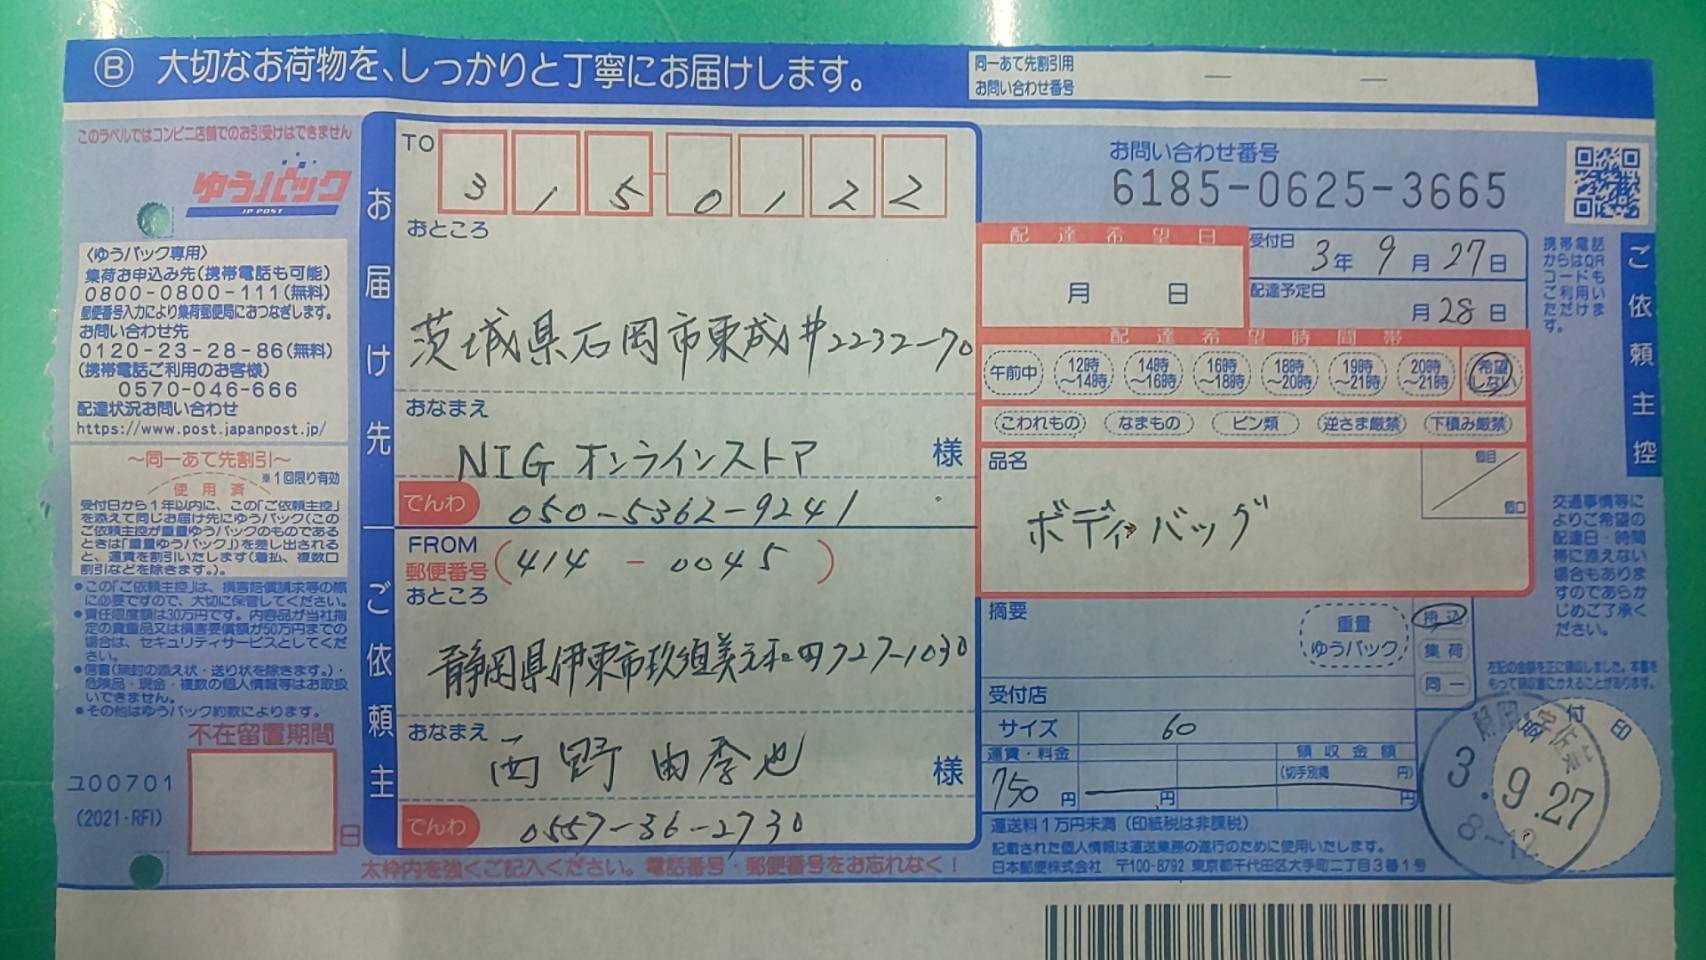 Ⓑ 大切なお荷物を、しっかりと丁寧にお届けします。
同一あて先割引用
お問い合わせ番号
このラベルではコンビニ店舗でのお引受けはできません
ゆうパック
JP POST
〈ゆうパック専用〉
集荷お申込み先(携帯電話も可能)
0800-0800-111(無料)
郵便番号入力により集荷郵便局におつなぎします。
お問い合わせ先
0120-23-28-86(無料)
(携帯電話ご利用のお客様)
0570-046-666
配達状況お問い合わせ
https://www.post.japanpost.jp/
～同一あて先割引～
※1回限り有効
使用済
受付日から1年以内に、この「ご依頼主控」
を添えて同じお届け先にゆうパック(この
ご依頼主控が重量ゆうパックのものである
ときは「重量ゆうパック」)を差し出される
と、運賃を割引いたします(着払、複数口
割引などを除きます。)。
●この「ご依頼主控」は、損害賠償請求等の際
に必要ですので、大切に保管してください。
●責任限度額は30万円です。内容品が当社指
定の貴重品又は損害要償額が50万円までの
場合は、セキュリティサービスとしてくだ
さい。
●信書(無封の添え状・送り状を除きます。)・
危険品・現金・複数の個人情報等はお取扱
いできません。
●その他はゆうパック約款によります。
不在留置期間
日
ユ00701
(2021・RFI)
お届け先
TO
315-0122
おところ
茨城県石岡市東成井2232-70
おなまえ
NIG オンラインストア 様
でんわ 050-5362-9241
ご依頼主
FROM
郵便番号(414-0045)
おところ
静岡県伊東市玖須美元和田727-1030
おなまえ
西野 由季也 様
でんわ 0557-36-2730
太枠内を強くご記入ください。電話番号・郵便番号をお忘れなく！
お問い合わせ番号
6185-0625-3665
配達希望日
月 日
受付日 3年9月27日
配達予定日
月28日
配達希望時間帯
午前中 12時～14時 14時～16時 16時～18時 18時～20時 19時～21時 20時～21時 希望しない
こわれもの なまもの ビン類 逆さま厳禁 下積み厳禁
品名
個目
個口
ボディバッグ
摘要
重量
ゆうパック
持込
集荷
同一
受付店
サイズ 60
運賃・料金
領収金額
(切手別納 円)
750円 円 円
運送料1万円未満(印紙税は非課税)
記載された個人情報は運送業務の遂行のために使用いたします。
日本郵便株式会社 〒100-8792 東京都千代田区大手町二丁目3番1号
携帯電話
からはQR
コードも
ご利用い
ただけま
す。
ご依頼主控
交通事情等に
よりご希望の
配達日・時間
帯に添えない
場合もありま
すのであらか
じめご了承く
ださい。
左記の金額を正に領収しました。本書を
もって領収書にかえることがあります。
付
印
3.9.27
8-12